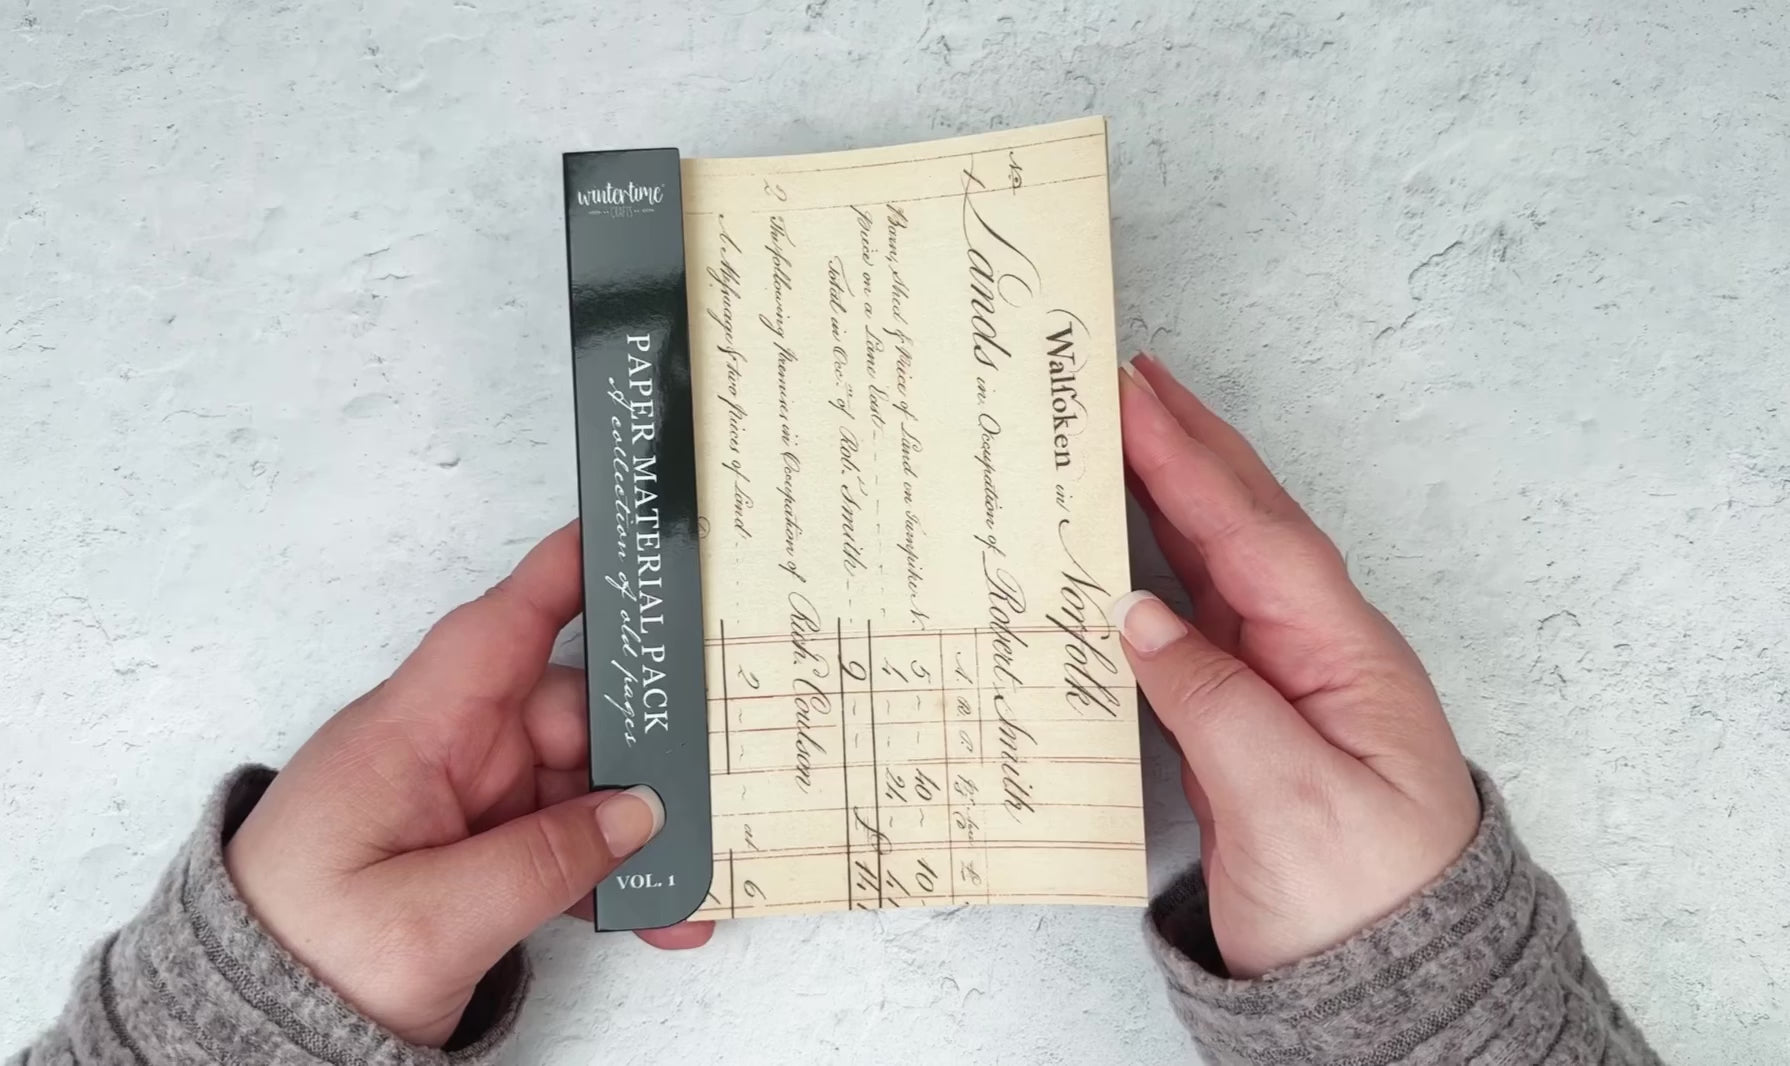 wintertime
CRAFTS
PAPER MATERIAL PACK
A collection of old pages
VOL. 1
Walsoken in Norfolk
No
1 Lands in Occupation of Robert Smith
A. R. P.
Barn, Shed & Piece of Land on 5 ~ ~ 40 ~ 10
piece on a Lane East 4 ~ ~ 24 ~
Total in Occ.n of Rob.t Smith 9 ~ ~
2 The following Premises in Occupation of Rich.d Coulson
A Messuage & two pieces of Land 2 ~ ~ ~ at 6